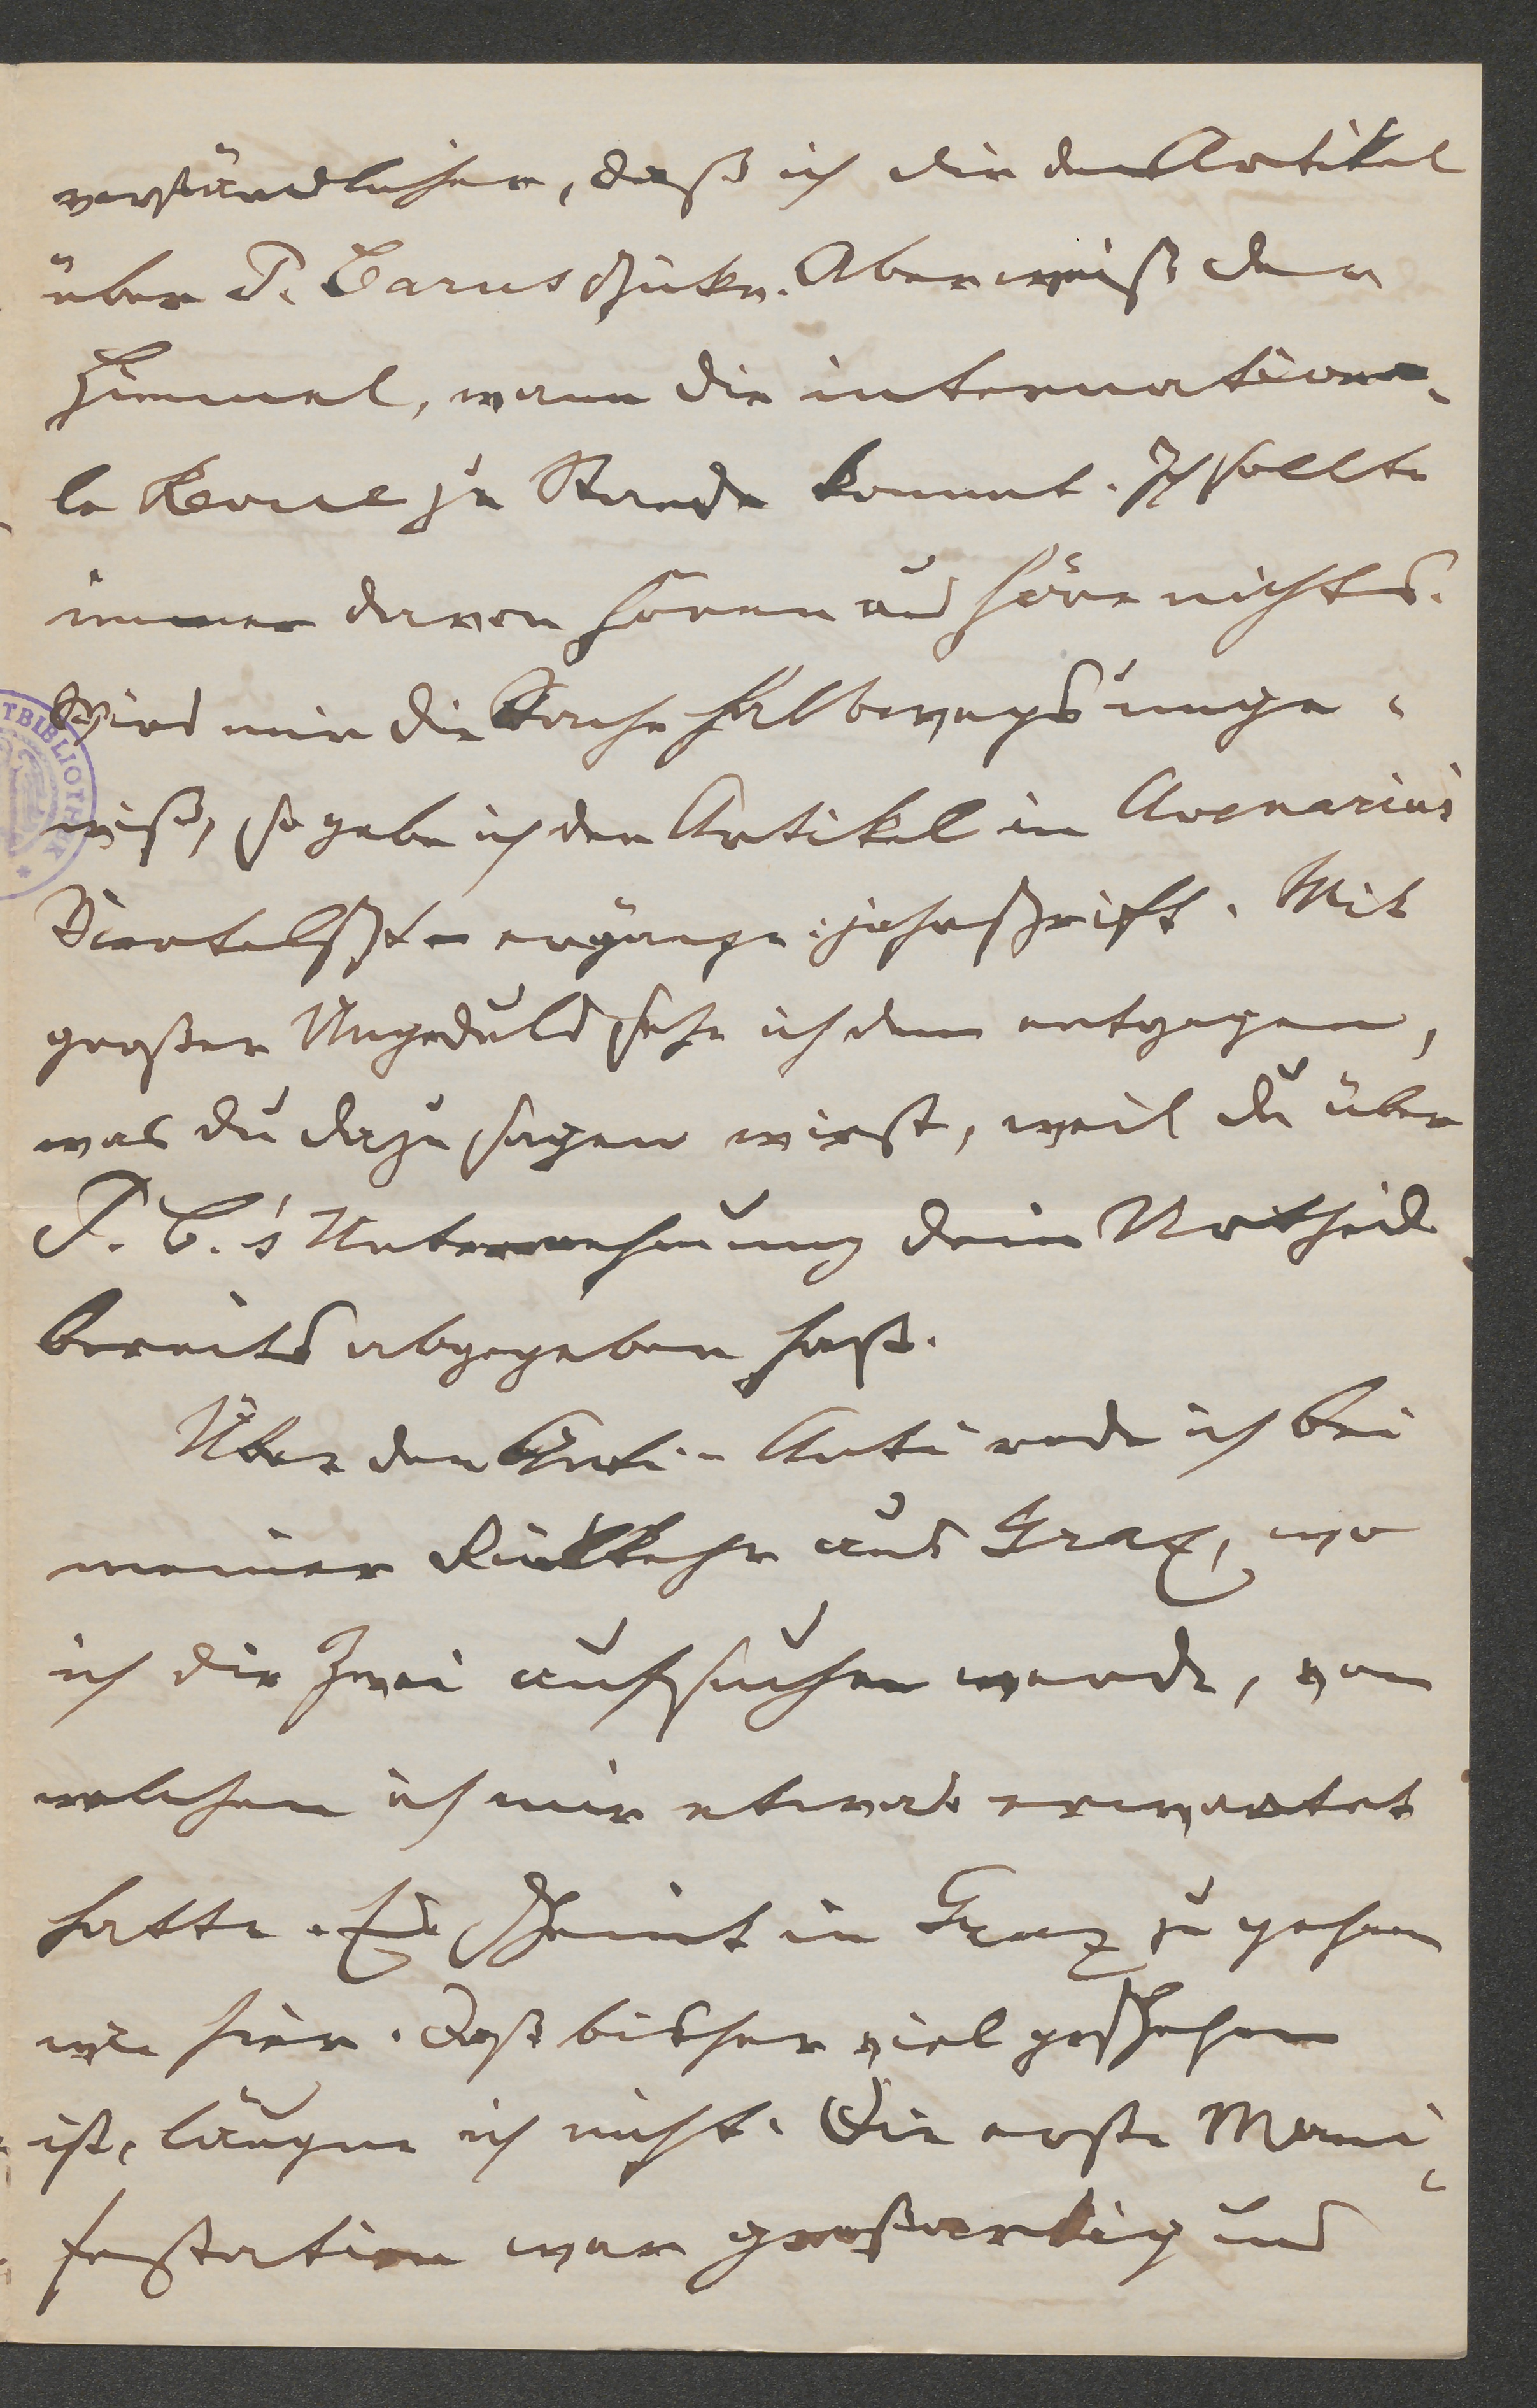 verständlicher, daß ich dir den Artikel
über P. Carus schicke. Aber weiß der
Himmel, wann die internationa-
le Revue zu Stande kommt. Ich sollte
immer davon hören und höre nichts.
Wird mir die Sache halbwegs unge-
wiß, so gebe ich den Artikel in Avenarius
Viertelsste ergänze: jahrschrift. Mit
großer Ungeduld sehe ich dem entgegen,
was du dazu sagen wirst, weil du über
P. C.'s Unternehmung dein Urtheil
bereits abgegeben hast.
Über den Anti-Anti rede ich bei
meiner Rückkehr aus Graz, wo
ich die Zwei aufsuchen werde, von
welchen ich mir etwas erwartet
hatte. Es scheint in Graz zu gehen
wie hier. Daß bisher viel geschehen
ist, läugne ich nicht. Die erste Mani-
festation war großartig und
TBIBLIOTHEK